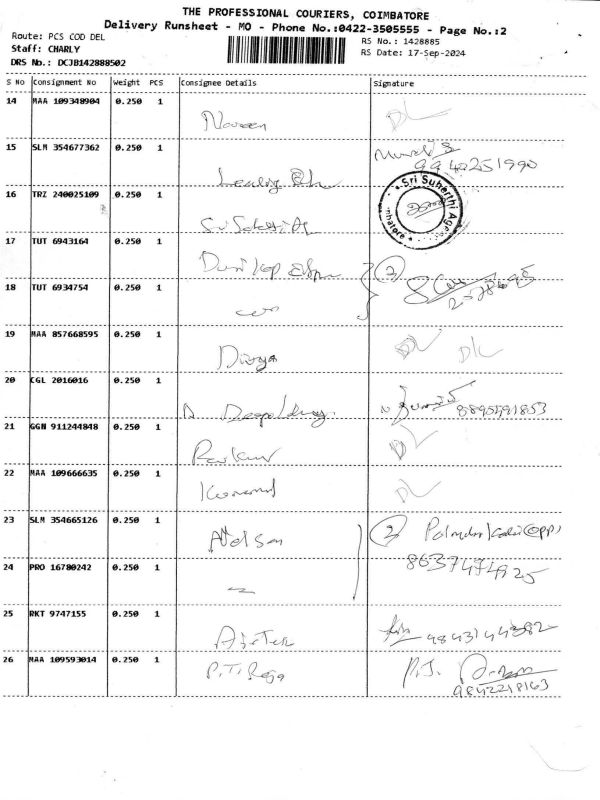 THE PROFESSIONAL COURIERS, COIMBATORE
Delivery Runsheet - MO - Phone No.:0422-3505555 - Page No.:2
Route: PCS COD DEL
RS No.: 1428885
Staff: CHARLY
RS Date: 17-Sep-2024
DRS No.: DCJB142888502
S No Consignment No Weight PCS Consignee Details Signature
14 MAA 109348904 0.250 1 Naveen DL
15 SLM 354677362 0.250 1
9942251990
16 TRZ 240025109 0.250 1
Sri Suherthi Agen
mbatore
17 TUT 6943164 0.250 1 2
18 TUT 6934754 0.250 1
19 MAA 857668595 0.250 1 Divya DL DL
20 CGL 2016016 0.250 1
8895591853
21 GGN 911244848 0.250 1 DL
22 MAA 109666635 0.250 1 DL
23 SLM 354665126 0.250 1 2
24 PRO 16780242 0.250 1 8637474925
25 RKT 9747155 0.250 1 9843144382
26 MAA 109593014 0.250 1 P.T. Raja P.T.
9842218163